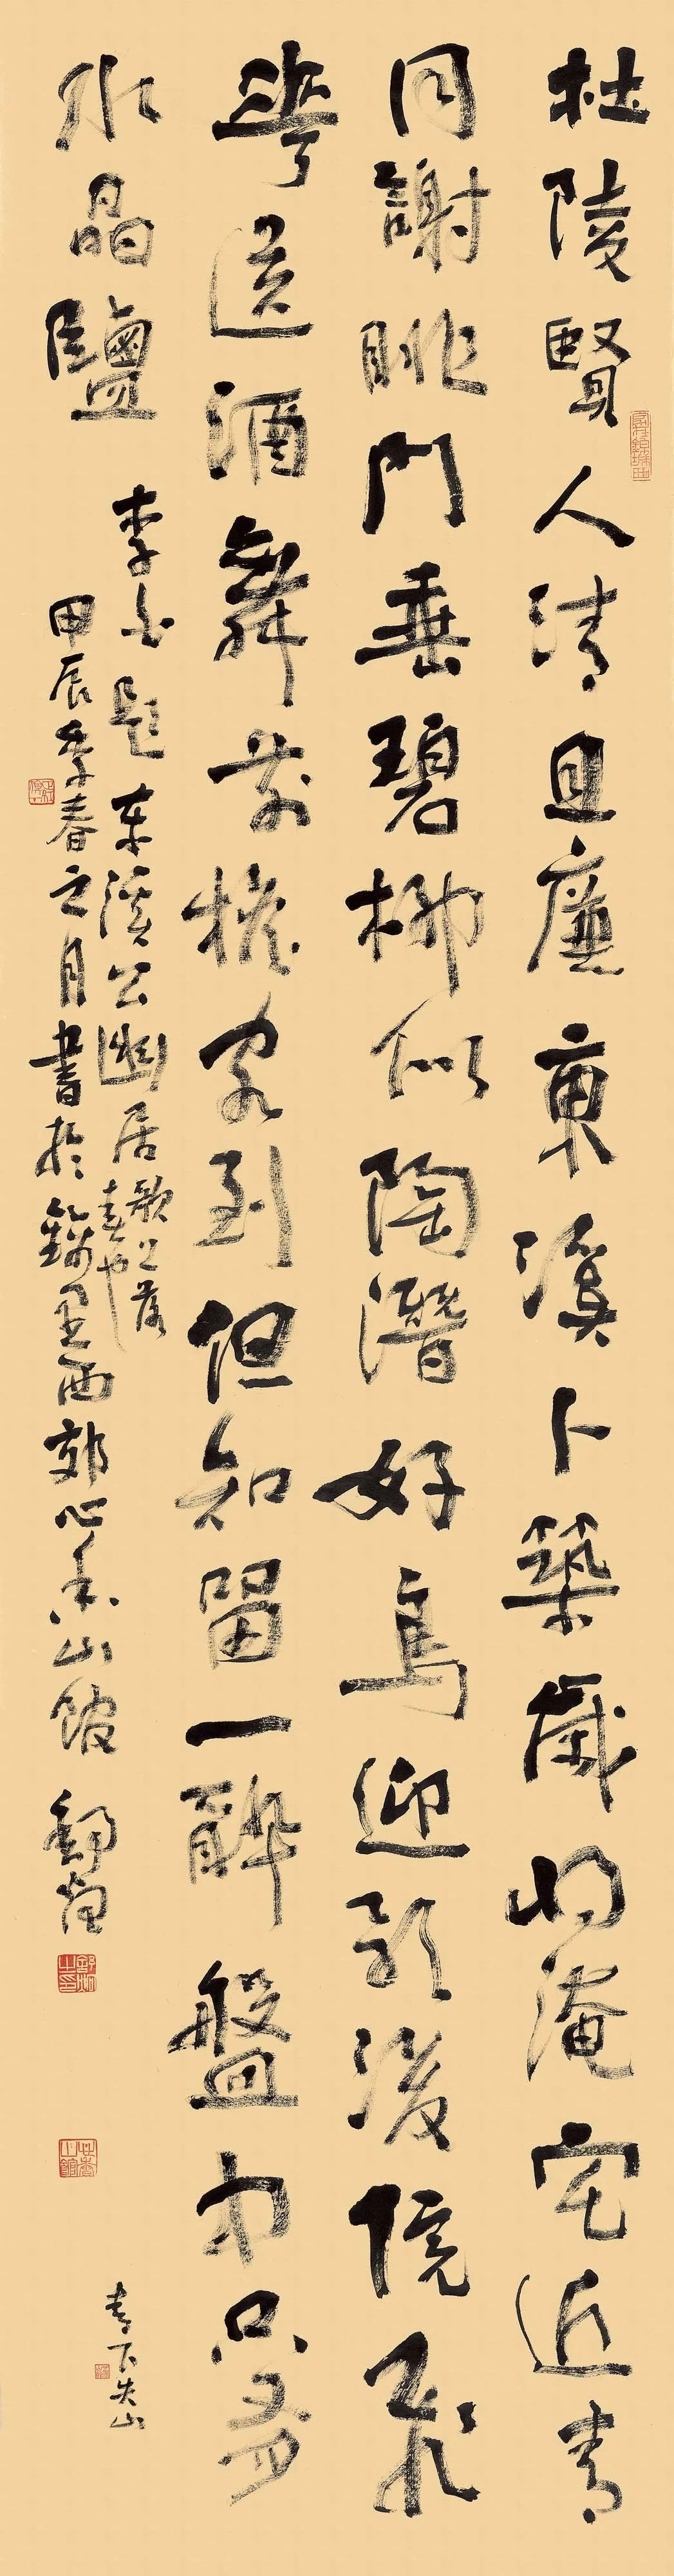 杜陵賢人清且廉東溪卜築歲將淹宅近青
同謝朓門垂碧柳似陶潛好鳥迎歌後院飛
花送酒舞前檐客到但知留一醉盤中只有
水晶鹽
李白題東溪公幽居
歌上落
青下失山
甲辰季春之月書於錦里西郊心香山館